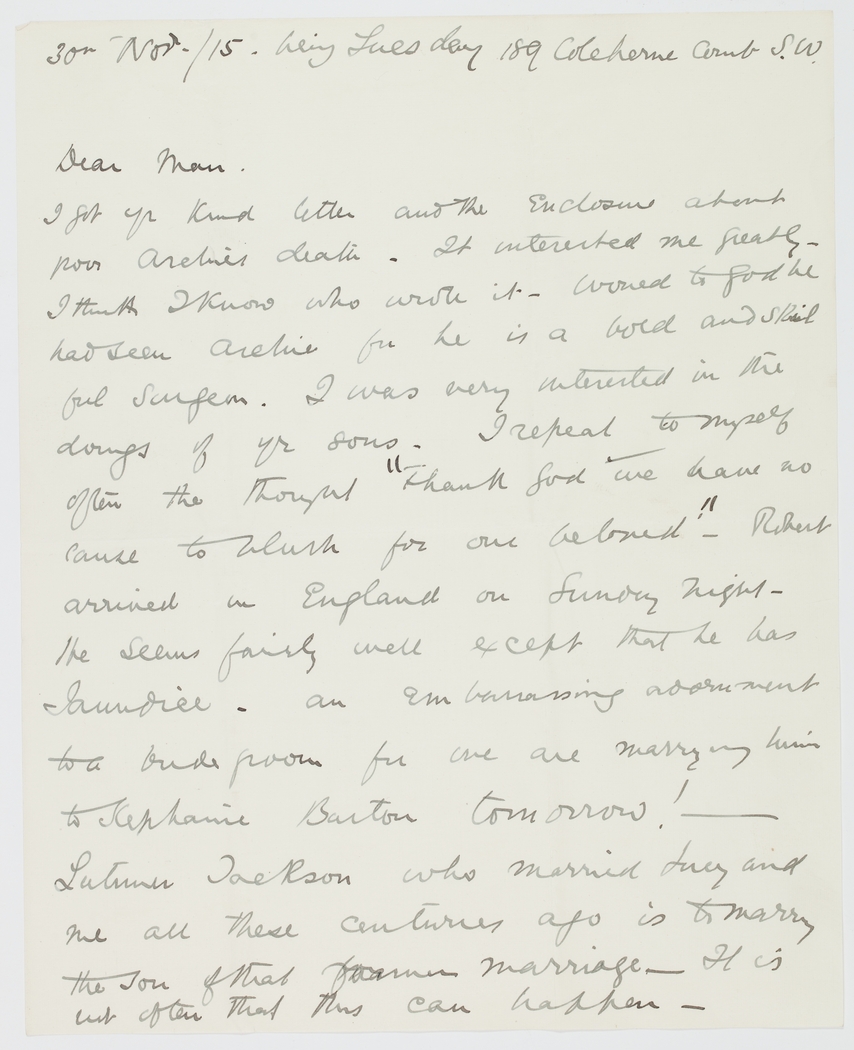 30th Nov-/15. being Tuesday 189 Coleherne Court S.W.
Dear Man.
I got yr kind letter and the Enclosure about
poor Archie's death - It interested me greatly -
I think I know who wrote it - Would to God he
had seen Archie for he is a bold and skil
ful Surgeon. I was very interested in the
doings of yr sons - I repeat to myself
often the thought "Thank God we have no
cause to blush for our beloved" - Robert
arrived in England on Sunday night -
He seems fairly well except that he has
Jaundice - an Embarrassing adornment
to a bridegroom for we are marrying him
to Stephanie Barton tomorrow! —
Latimer Jackson who married Lucy and
me all these centuries ago is to marry
the Son of that former marriage - It is
not often that this can happen -